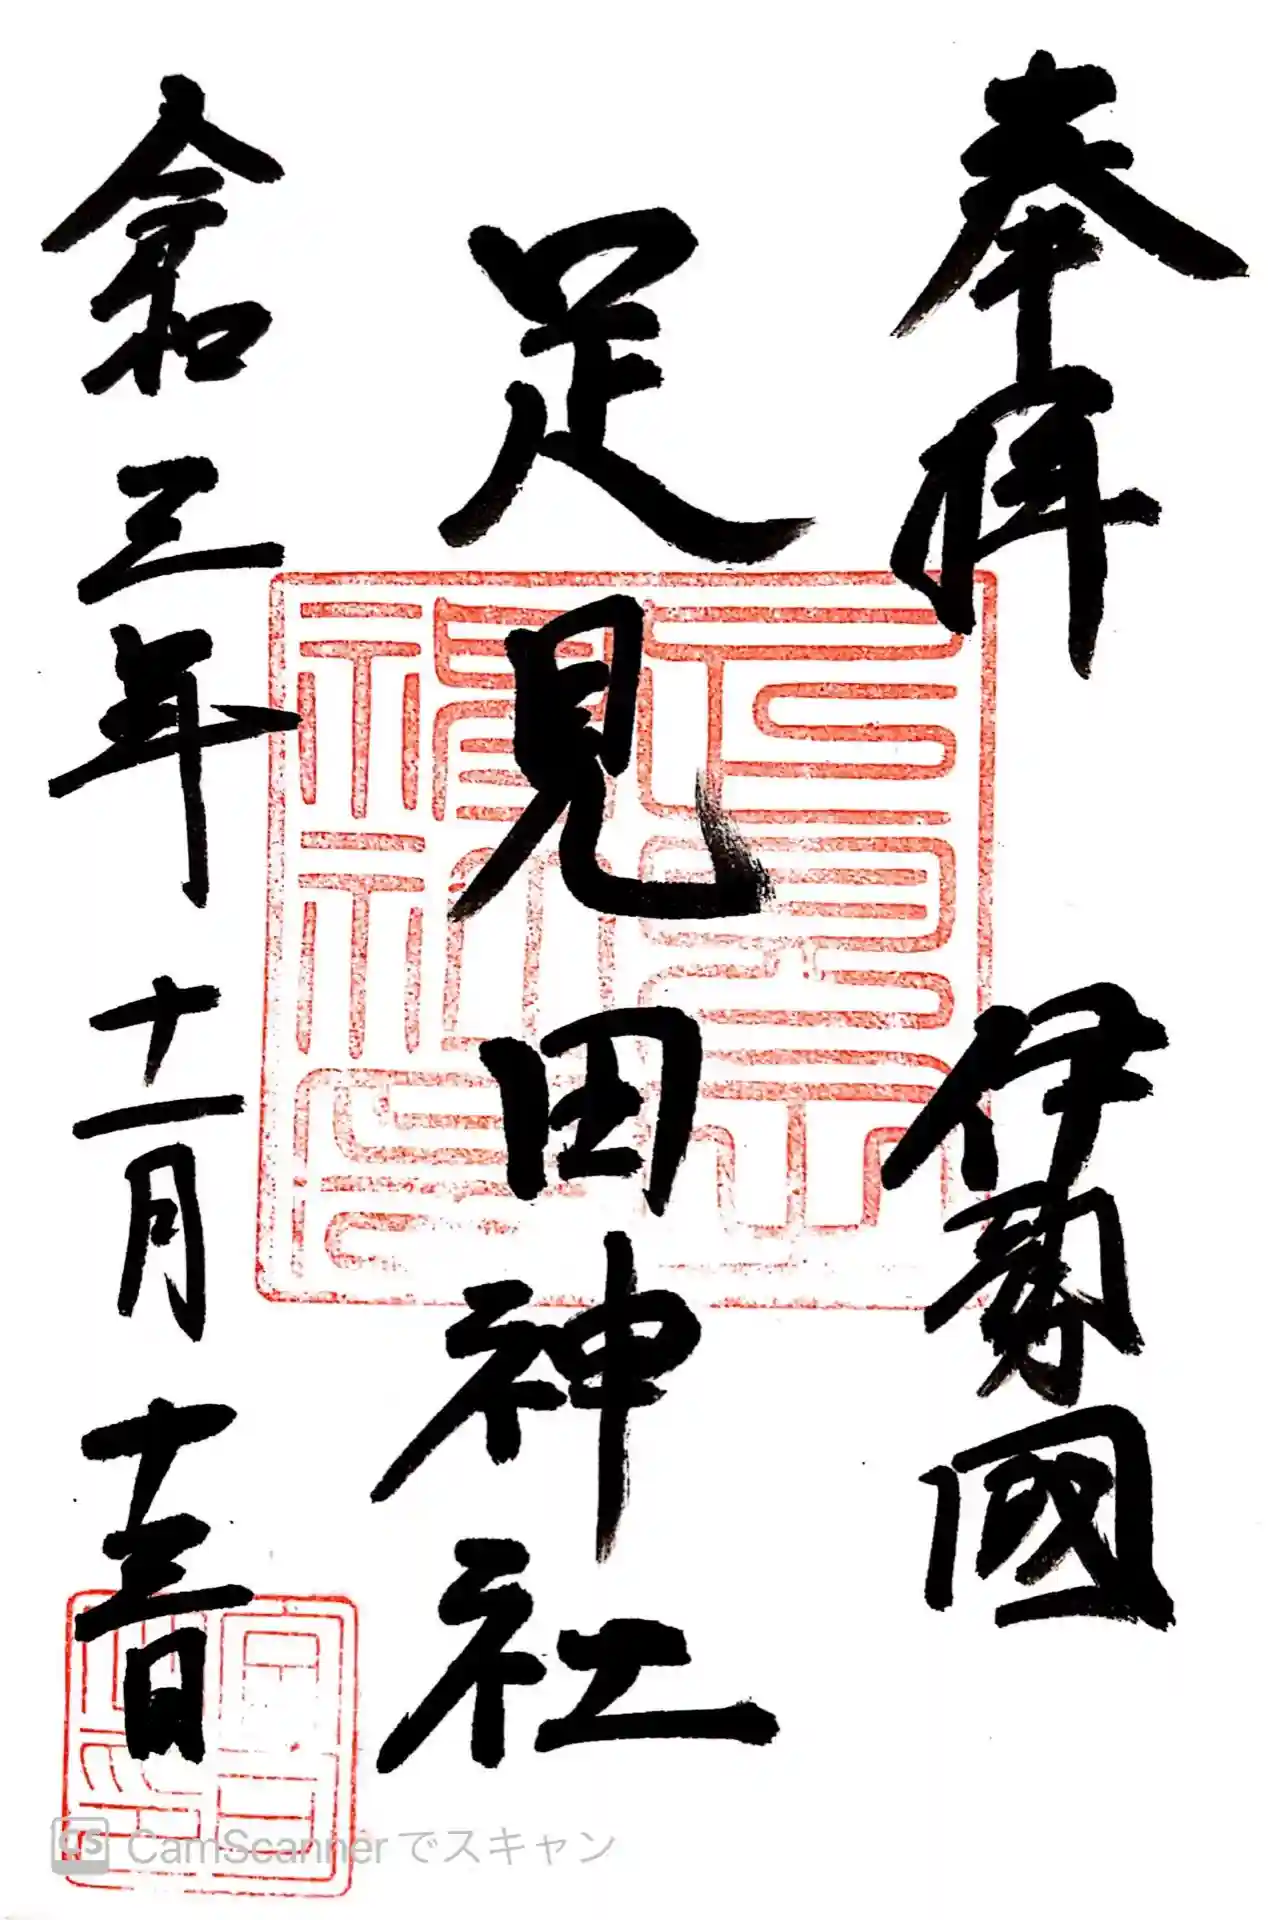 奉拝 伊勢國
足見田神社
令和三年十一月十三日
CS CamScanner でスキャン